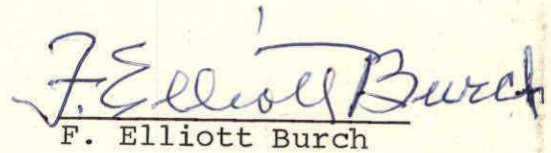 F. Elliott Burch
F. Elliott Burch